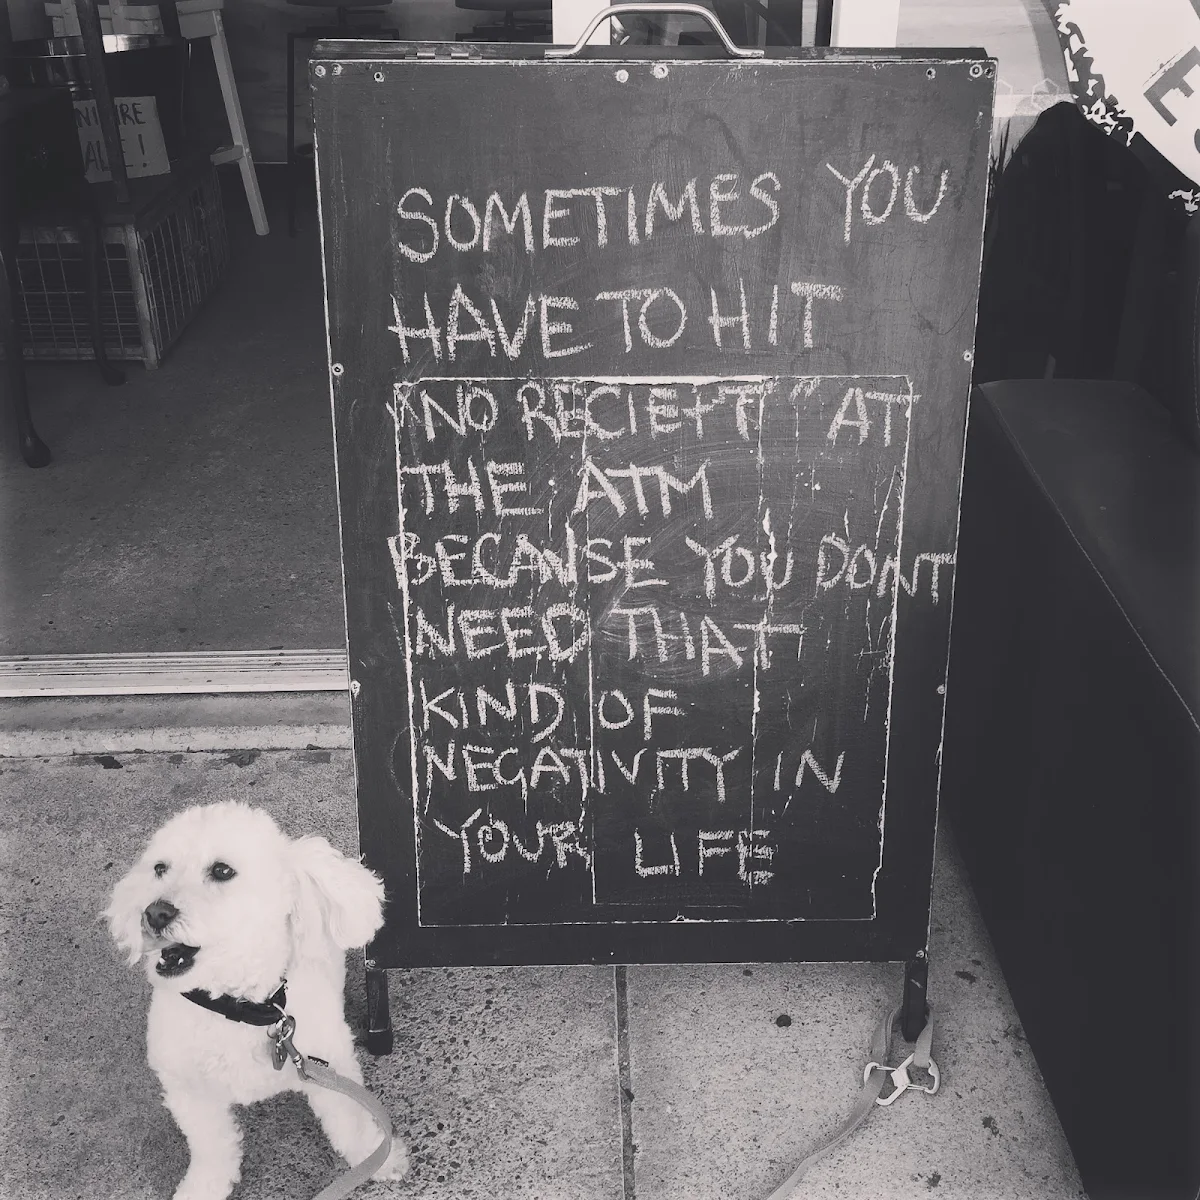 SOMETIMES YOU
HAVE TO HIT
"NO RECIEPT" AT
THE ATM
BECAUSE YOU DONT
NEED THAT
KIND OF
NEGATIVITY IN
YOUR LIFE